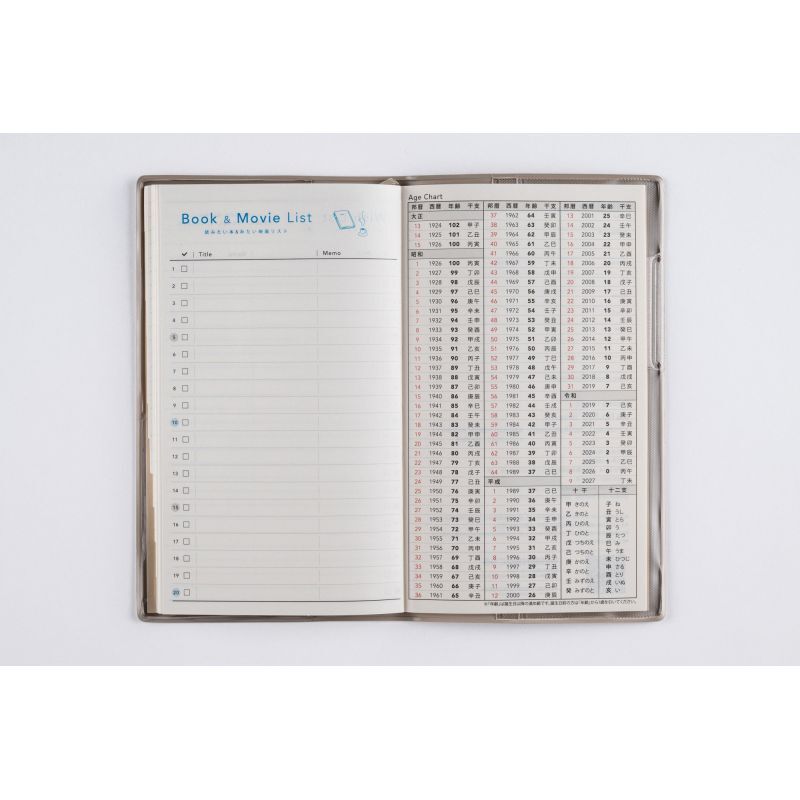 Book & Movie List
読みたい本&みたい映画リスト
✓ Title Memo
1
2
3
4
5
6
7
8
9
10
11
12
13
14
15
16
17
18
19
20
Age Chart
邦暦 西暦 年齢 干支
大正
13 1924 102 甲子
14 1925 101 乙丑
15 1926 100 丙寅
昭和
1 1926 100 丙寅
2 1927 99 丁卯
3 1928 98 戊辰
4 1929 97 己巳
5 1930 96 庚午
6 1931 95 辛未
7 1932 94 壬申
8 1933 93 癸酉
9 1934 92 甲戌
10 1935 91 乙亥
11 1936 90 丙子
12 1937 89 丁丑
13 1938 88 戊寅
14 1939 87 己卯
15 1940 86 庚辰
16 1941 85 辛巳
17 1942 84 壬午
18 1943 83 癸未
19 1944 82 甲申
20 1945 81 乙酉
21 1946 80 丙戌
22 1947 79 丁亥
23 1948 78 戊子
24 1949 77 己丑
25 1950 76 庚寅
26 1951 75 辛卯
27 1952 74 壬辰
28 1953 73 癸巳
29 1954 72 甲午
30 1955 71 乙未
31 1956 70 丙申
32 1957 69 丁酉
33 1958 68 戊戌
34 1959 67 己亥
35 1960 66 庚子
36 1961 65 辛丑
邦暦 西暦 年齢 干支
37 1962 64 壬寅
38 1963 63 癸卯
39 1964 62 甲辰
40 1965 61 乙巳
41 1966 60 丙午
42 1967 59 丁未
43 1968 58 戊申
44 1969 57 己酉
45 1970 56 庚戌
46 1971 55 辛亥
47 1972 54 壬子
48 1973 53 癸丑
49 1974 52 甲寅
50 1975 51 乙卯
51 1976 50 丙辰
52 1977 49 丁巳
53 1978 48 戊午
54 1979 47 己未
55 1980 46 庚申
56 1981 45 辛酉
57 1982 44 壬戌
58 1983 43 癸亥
59 1984 42 甲子
60 1985 41 乙丑
61 1986 40 丙寅
62 1987 39 丁卯
63 1988 38 戊辰
64 1989 37 己巳
平成
1 1989 37 己巳
2 1990 36 庚午
3 1991 35 辛未
4 1992 34 壬申
5 1993 33 癸酉
6 1994 32 甲戌
7 1995 31 乙亥
8 1996 30 丙子
9 1997 29 丁丑
10 1998 28 戊寅
11 1999 27 己卯
12 2000 26 庚辰
邦暦 西暦 年齢 干支
13 2001 25 辛巳
14 2002 24 壬午
15 2003 23 癸未
16 2004 22 甲申
17 2005 21 乙酉
18 2006 20 丙戌
19 2007 19 丁亥
20 2008 18 戊子
21 2009 17 己丑
22 2010 16 庚寅
23 2011 15 辛卯
24 2012 14 壬辰
25 2013 13 癸巳
26 2014 12 甲午
27 2015 11 乙未
28 2016 10 丙申
29 2017 9 丁酉
30 2018 8 戊戌
31 2019 7 己亥
令和
1 2019 7 己亥
2 2020 6 庚子
3 2021 5 辛丑
4 2022 4 壬寅
5 2023 3 癸卯
6 2024 2 甲辰
7 2025 1 乙巳
8 2026 0 丙午
9 2027 丁未
十干 十二支
甲 きのえ
乙 きのと
丙 ひのえ
丁 ひのと
戊 つちのえ
己 つちのと
庚 かのえ
辛 かのと
壬 みずのえ
癸 みずのと
子 ね
丑 うし
寅 とら
卯 う
辰 たつ
巳 み
午 うま
未 ひつじ
申 さる
酉 とり
戌 いぬ
亥 い
※「年齢」は誕生日以降の満年齢です。誕生日前の方は「年齢」から1歳を引いてください。